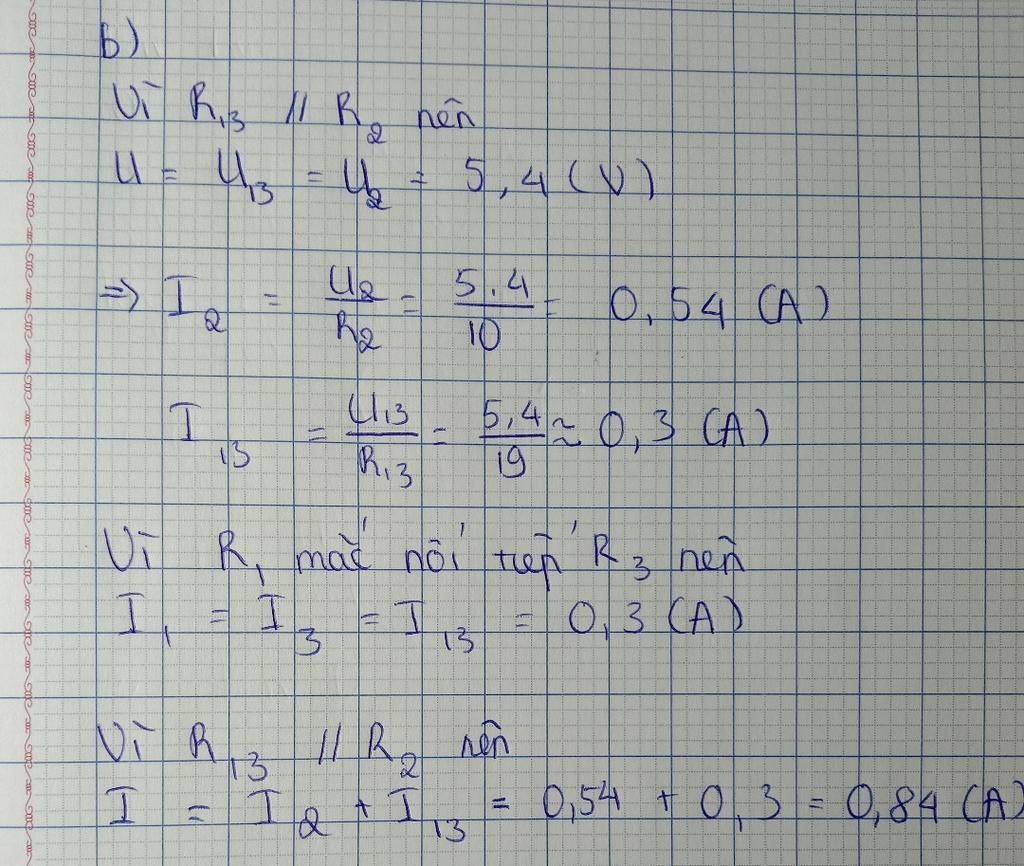 b)
Vì R₁₃ // R₂ nên
U = U₁₃ = U₂ = 5,4 (V)
=> I₂ = U₂/R₂ = 5.4/10 = 0,54 (A)
I₁₃ = U₁₃/R₁₃ = 5,4/19 ≈ 0,3 (A)
Vì R₁ mắc nối tiếp R₃ nên
I₁ = I₃ = I₁₃ = 0,3 (A)
Vì R₁₃ // R₂ nên
I = I₂ + I₁₃ = 0,54 + 0,3 = 0,84 (A)